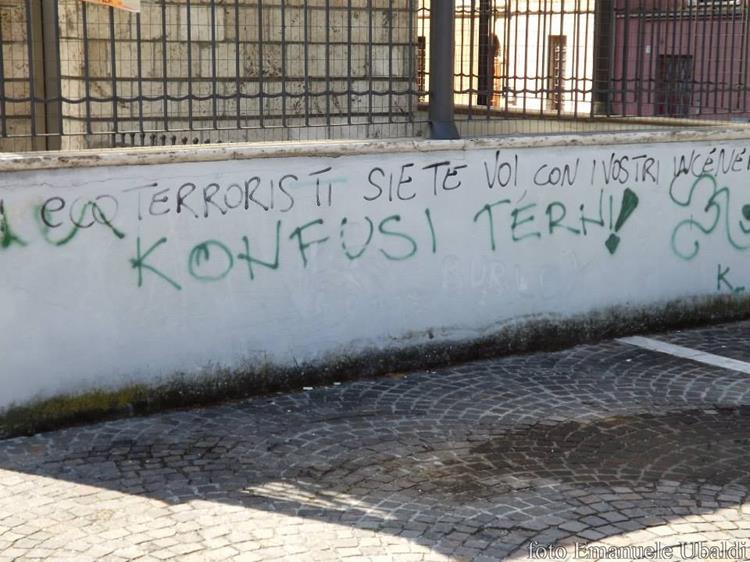 ecoTERRORISTI SIETE VOI CON I VOSTRI INCENER
KONFUSI TERNI!
K
foto Emanuele Ubaldi